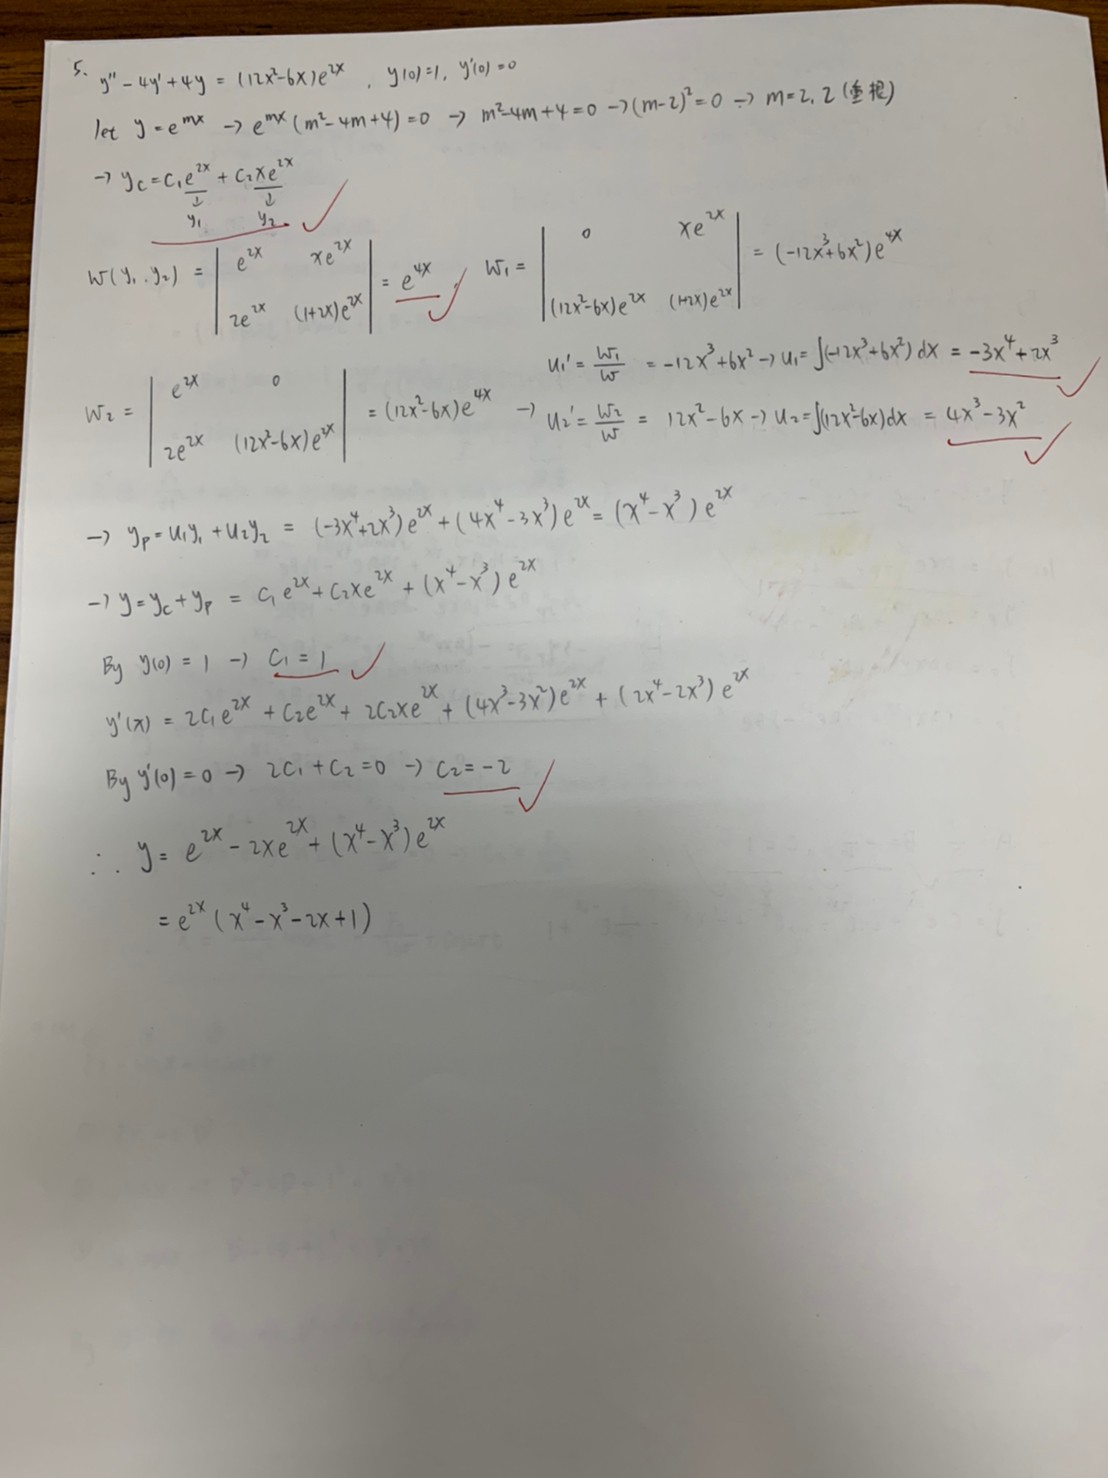 5. y'' - 4y' + 4y = (12x²-6x)e^{2x} , y(0)=1, y'(0)=0
let y = e^{mx} → e^{mx}(m²-4m+4)=0 → m²-4m+4=0 → (m-2)²=0 → m=2, 2 (重根)
→ y_c = C₁e^{2x} + C₂xe^{2x}
↓ ↓
y₁ y₂
W(y₁, y₂) = | e^{2x} xe^{2x} ; 2e^{2x} (1+2x)e^{2x} | = e^{4x} W₁ = | 0 xe^{2x} ; (12x²-6x)e^{2x} (1+2x)e^{2x} | = (-12x³+6x²)e^{4x}
W₂ = | e^{2x} 0 ; 2e^{2x} (12x²-6x)e^{2x} | = (12x²-6x)e^{4x} → u₁' = W₁/W = -12x³+6x² → u₁ = ∫(-12x³+6x²)dx = -3x⁴+2x³
u₂' = W₂/W = 12x²-6x → u₂ = ∫(12x²-6x)dx = 4x³-3x²
→ y_p = u₁y₁ + u₂y₂ = (-3x⁴+2x³)e^{2x} + (4x⁴-3x³)e^{2x} = (x⁴-x³)e^{2x}
→ y = y_c + y_p = C₁e^{2x} + C₂xe^{2x} + (x⁴-x³)e^{2x}
By y(0) = 1 → C₁ = 1
y'(x) = 2C₁e^{2x} + C₂e^{2x} + 2C₂xe^{2x} + (4x³-3x²)e^{2x} + (2x⁴-2x³)e^{2x}
By y'(0) = 0 → 2C₁ + C₂ = 0 → C₂ = -2
∴ y = e^{2x} - 2xe^{2x} + (x⁴-x³)e^{2x}
= e^{2x}(x⁴-x³-2x+1)